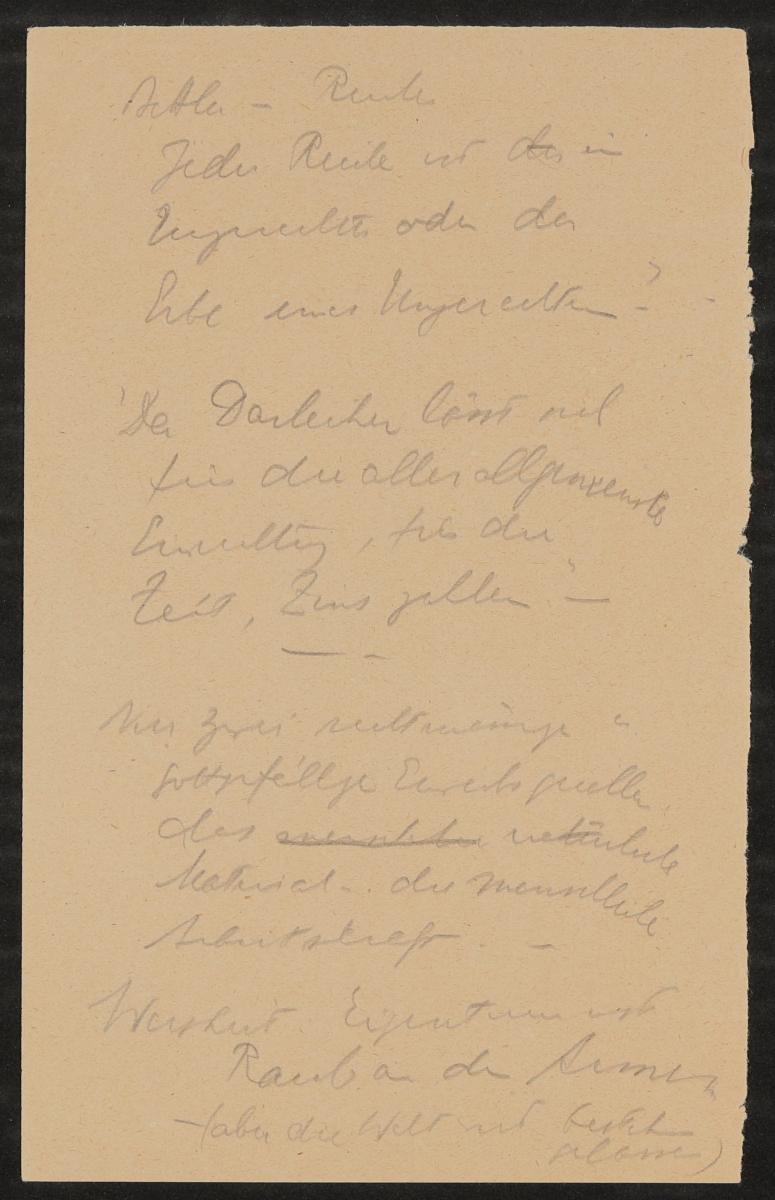 Jeder Reiche ist der ein
Ungerechter oder der
Erbe eines Ungerechten" –
"Der Darleiher lässt sich
für die aller allgemeinste
für die
Zeit, Zins zahlen" –
Nur zwei rechtmässige u
gottgefällige Erwerbsquellen
das menschliche natürliche
Material – die menschliche
Arbeitskraft. –
Weisheit. Eigentum ist
Raub an den Armen
– (aber die Welt ist